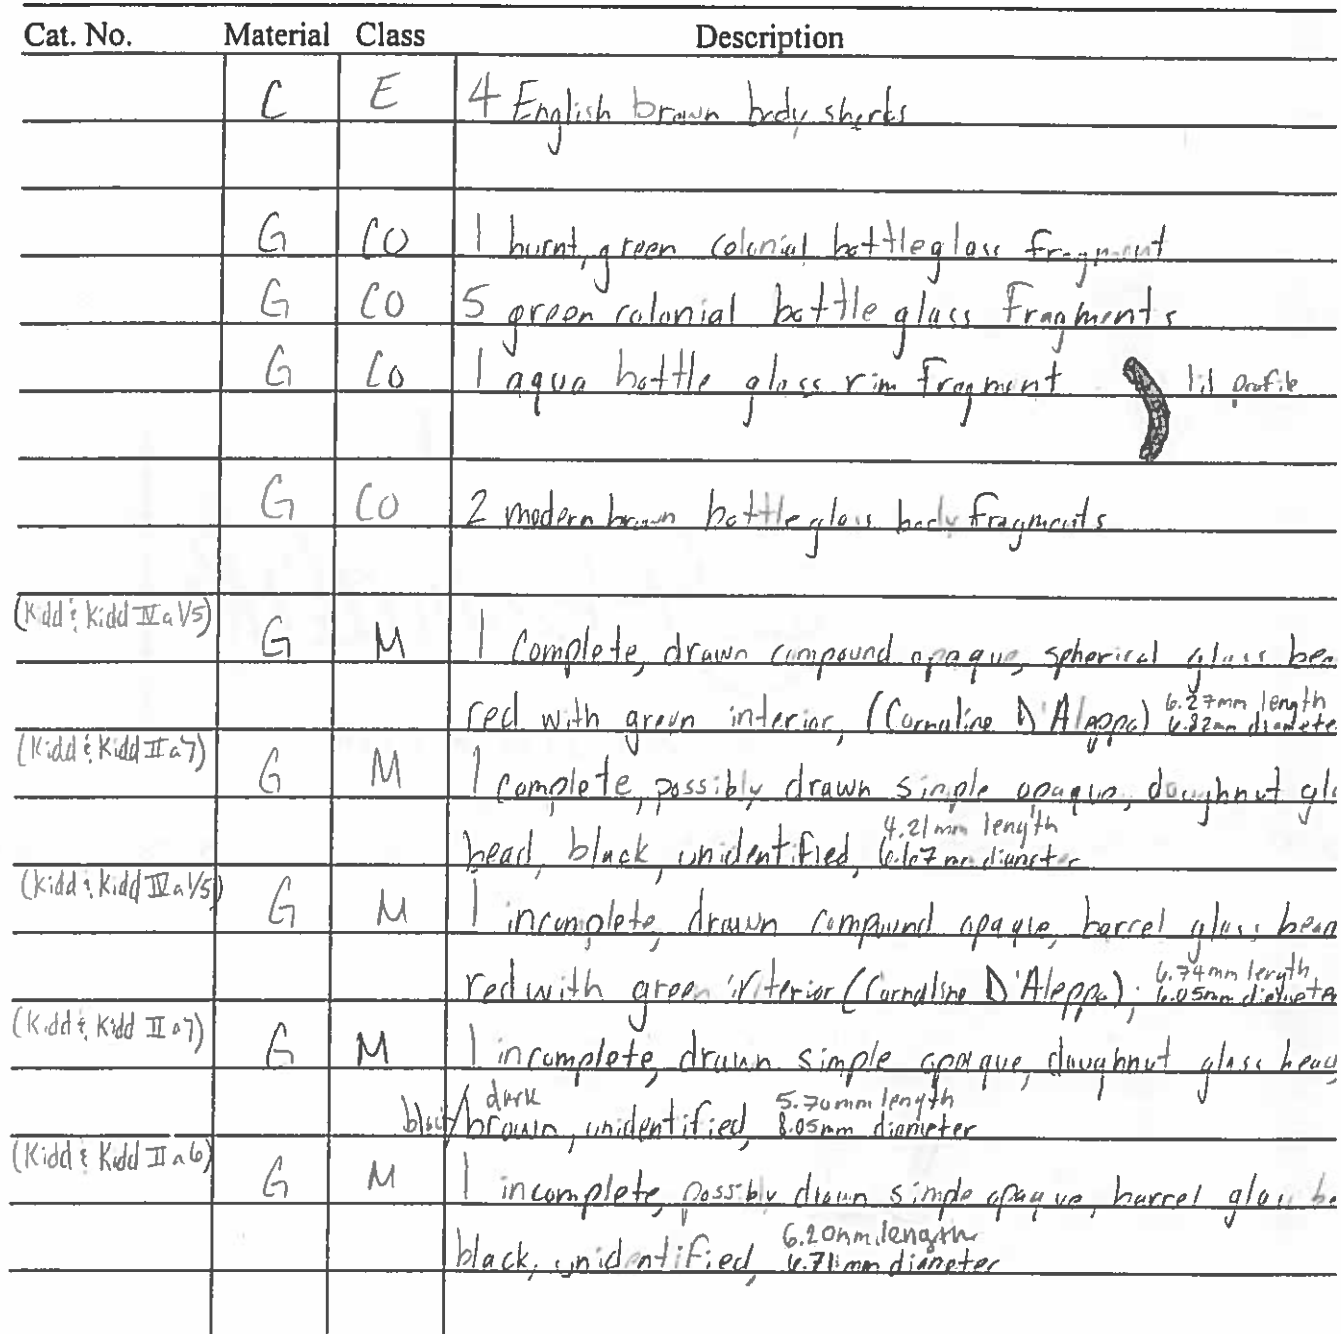 Cat. No. Material Class Description
C E 4 English brown body sherds
G CO 1 burnt, green colonial bottle glass fragment
G CO 5 green colonial bottle glass fragments
G CO 1 aqua bottle glass rim fragment 1:1 profile
G CO 2 modern brown bottle glass body fragments
(Kidd & Kidd IVa1/5) G M 1 Complete, drawn compound opaque, spherical glass bea
red with green interior, (Cornaline D'Aleppo) 6.27mm length
6.82mm diamete
(Kidd & Kidd IIa7) G M 1 complete, possibly drawn simple opaque, doughnut gla
bead, black, unidentified, 4.21mm length
6.67mm diameter
(Kidd & Kidd IVa1/5) G M 1 incomplete, drawn compound opaque, barrel glass bead
red with green interior (Cornaline D'Aleppo); 6.74mm length,
6.05mm diameter
(Kidd & Kidd IIa7) G M 1 incomplete, drawn simple opaque, doughnut glass bead,
black/dark brown, unidentified, 5.70mm length
8.05mm diameter
(Kidd & Kidd IIa6) G M 1 incomplete, possibly drawn simple opaque, barrel glass be
black, unidentified, 6.20mm length
6.71mm diameter